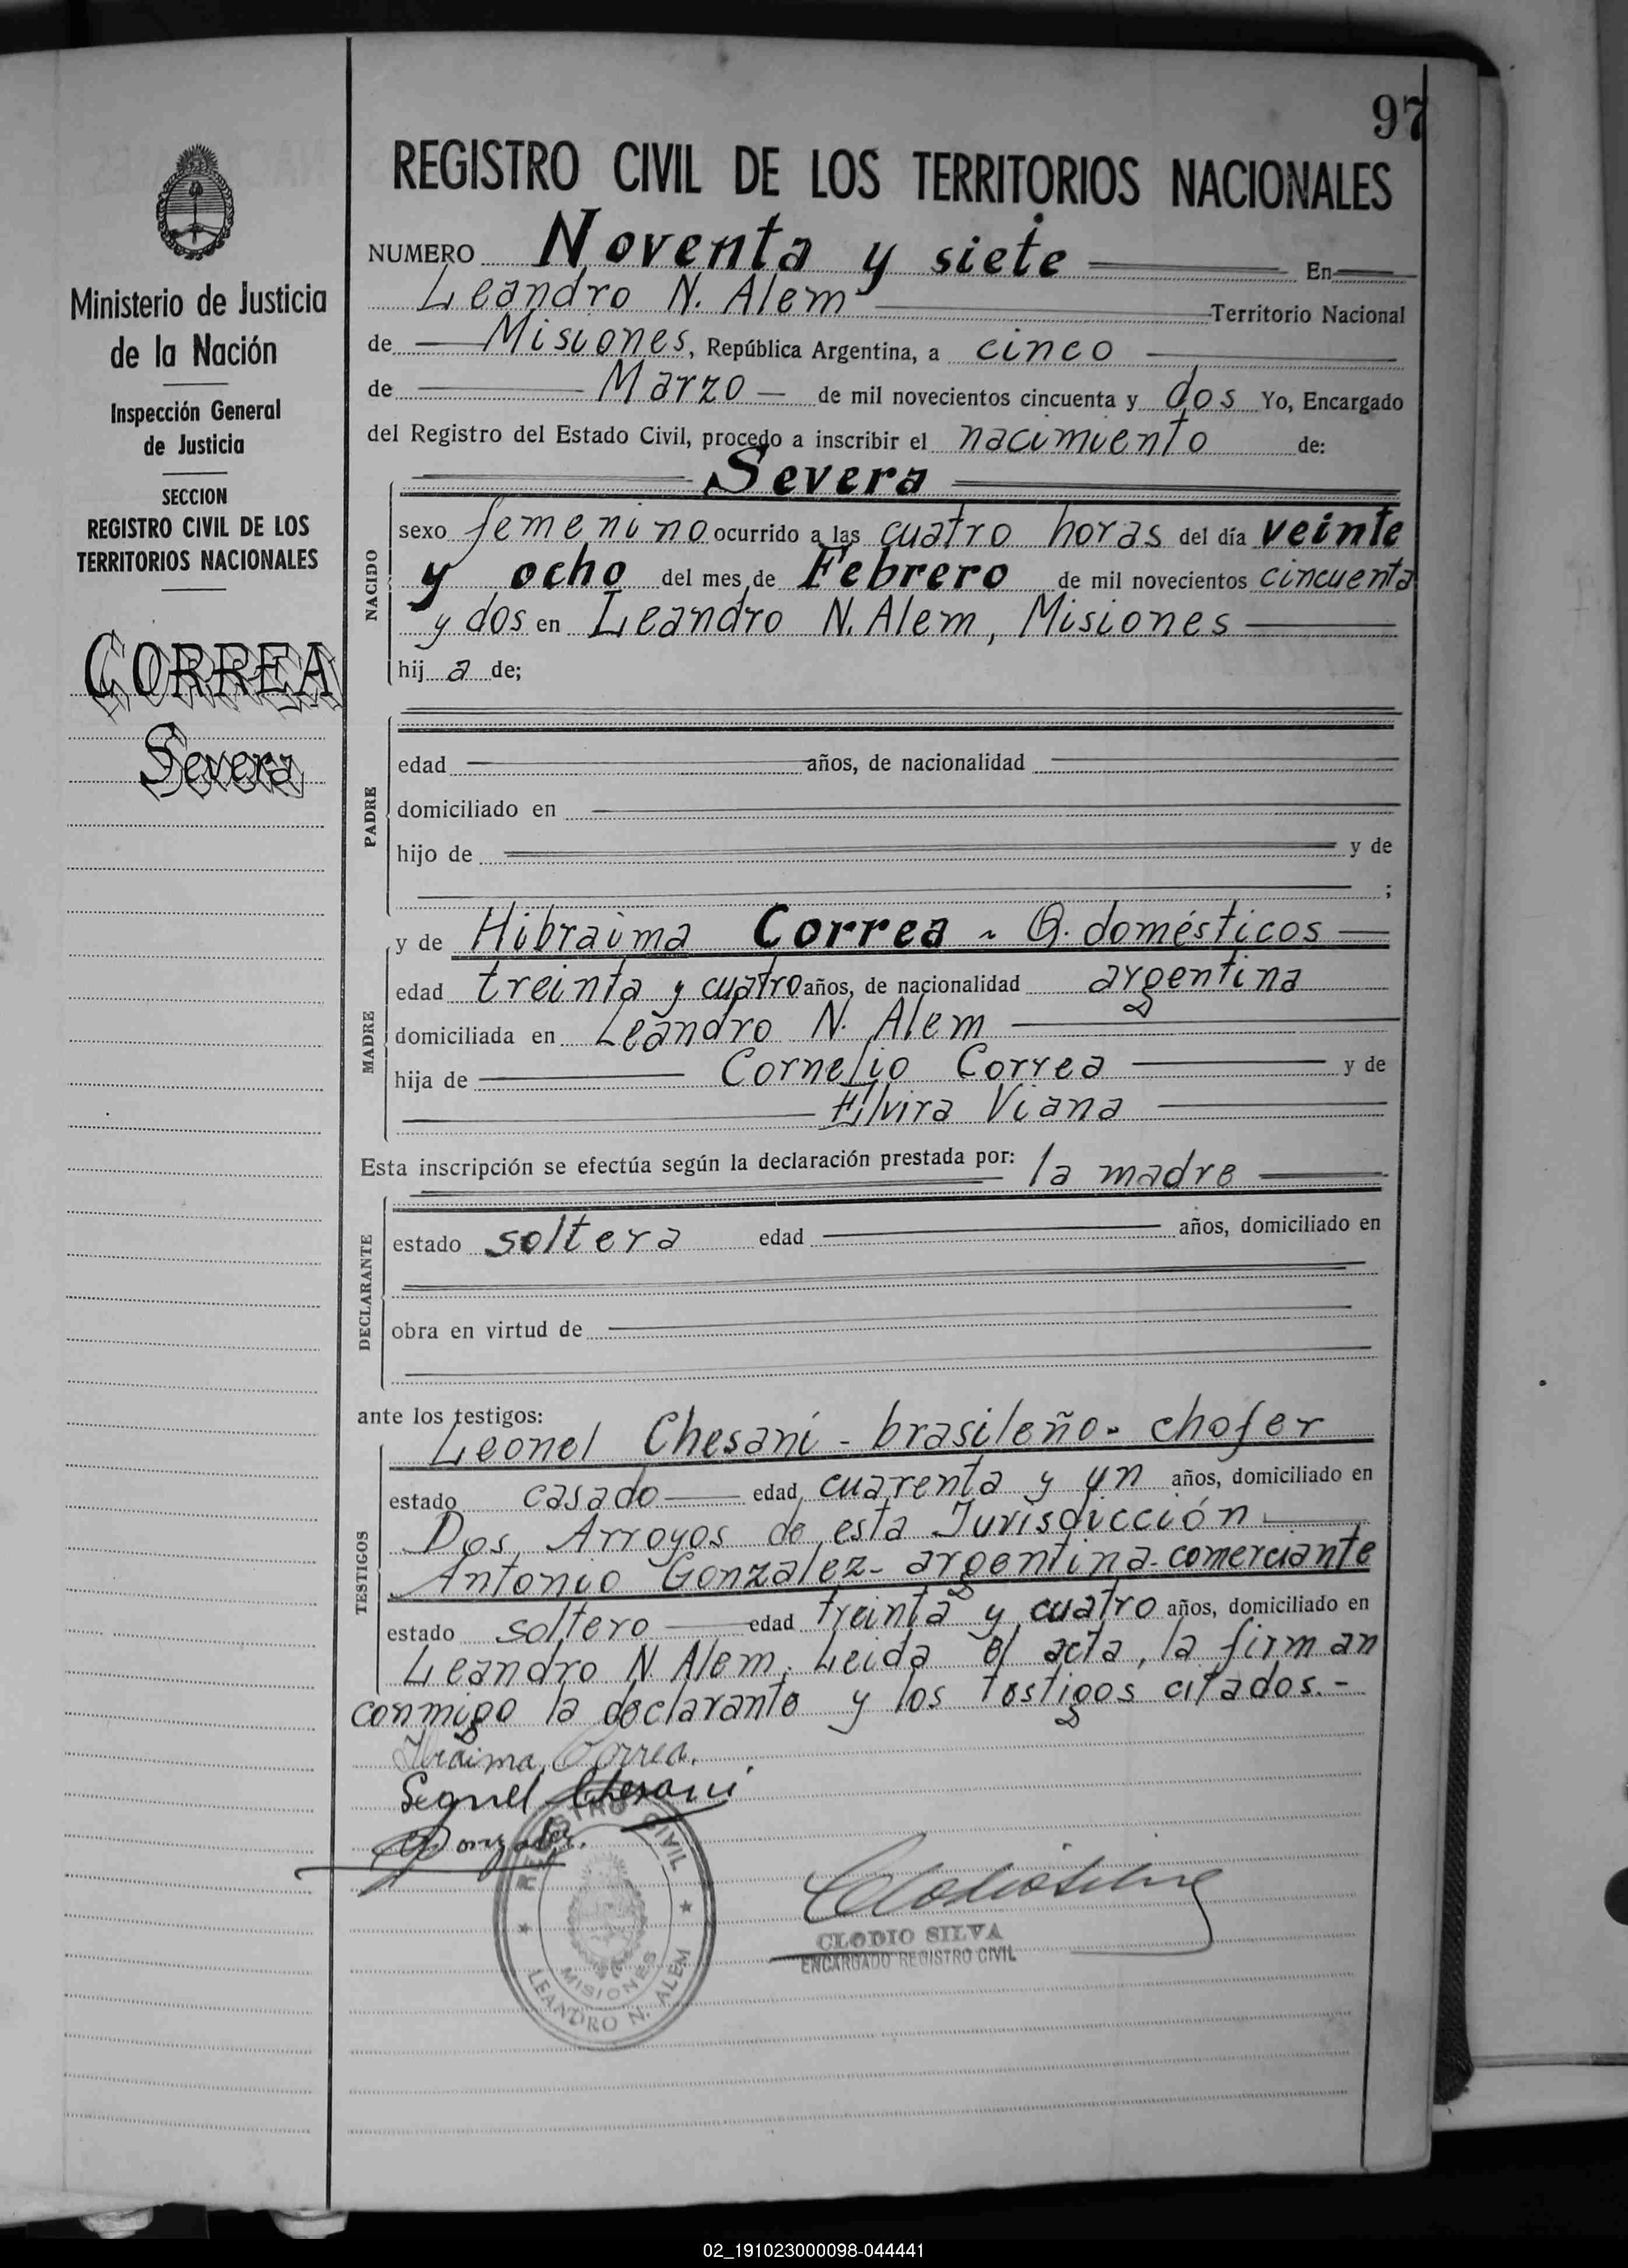 97
REGISTRO CIVIL DE LOS TERRITORIOS NACIONALES
Ministerio de Justicia
de la Nación
Inspección General
de Justicia
SECCION
REGISTRO CIVIL DE LOS
TERRITORIOS NACIONALES
CORREA
Severa
NUMERO Noventa y siete En
Leandro N. Alem Territorio Nacional
de Misiones, República Argentina, a cinco
de Marzo de mil novecientos cincuenta y dos Yo, Encargado
del Registro del Estado Civil, procedo a inscribir el nacimiento de:
Severa
NACIDO
sexo femenino ocurrido a las cuatro horas del día veinte
y ocho del mes de Febrero de mil novecientos cincuenta
y dos en Leandro N. Alem, Misiones
hij a de;
PADRE
edad años, de nacionalidad
domiciliado en
hijo de y de
;
MADRE
y de Hibraima Correa - Q. domésticos
edad treinta y cuatro años, de nacionalidad argentina
domiciliada en Leandro N. Alem
hija de Cornelio Correa y de
Elvira Viana
Esta inscripción se efectúa según la declaración prestada por: la madre
DECLARANTE
estado soltera edad años, domiciliado en
obra en virtud de
ante los testigos:
TESTIGOS
Leonel Chesani - brasileño - chofer
estado casado edad cuarenta y un años, domiciliado en
Dos Arroyos de esta Jurisdicción
Antonio Gonzalez - argentina - comerciante
estado soltero edad treinta y cuatro años, domiciliado en
Leandro N Alem. Leida el acta, la firman
conmigo la declarante y los testigos citados.-
Ibraima Correa.
Chesani
Gonzalez.
REGISTRO CIVIL
MISIONES
LEANDRO N. ALEM
CLODIO SILVA
ENCARGADO REGISTRO CIVIL
02_191023000098-044441